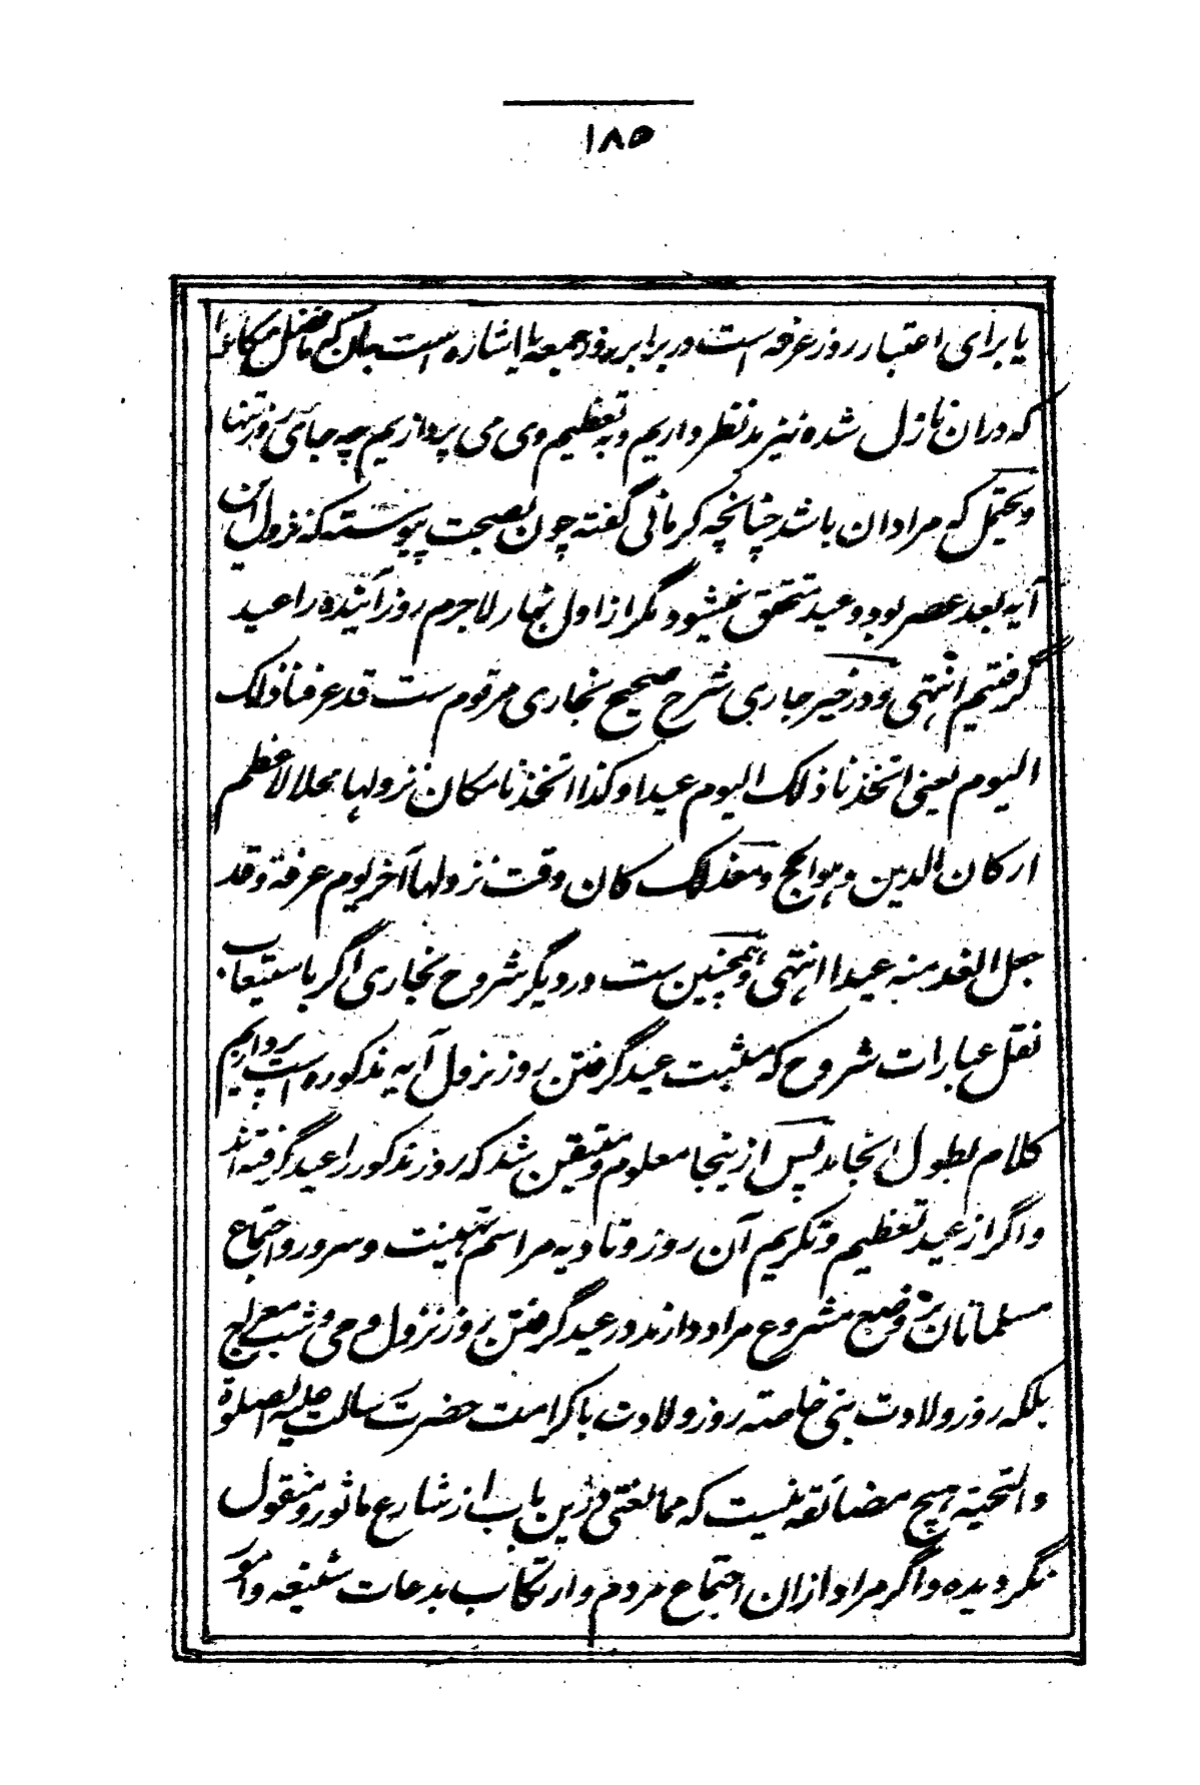 ۱۸۵
یا برای اعتبار روز عرفه است در برابر روز جمعه یا اشاره است بآن که ما فضل مکان را
که دران نازل شده نیز مد نظر داریم و به تعظیم وی می پردازیم چه جای روز تنها
و یحتمل که مراد ان باشد چنانچه کرمانی گفته چون بصحت پیوسته که نزول این
آیه بعد عصر بود و عید متحقق نمیشود مگر از اول نهار لاجرم روز آینده را عید
گرفتیم انتهی و در خیر جاری شرح صحیح بخاری مرقوم ست قد عرفنا ذلک
الیوم یعنی اتخذنا ذلک الیوم عیدا و کذا اتخذنا مکان نزولها محلا لاعظم
ارکان الدین و هو الحج و معذلک کان وقت نزولها آخر یوم عرفة و قد
جعل الغد منه عیدا انتهی و همچنین ست در دیگر شروح بخاری اگر باستیعاب
نقل عبارات شروح که مثبت عید گرفتن روز نزول آیه مذکوره است پردازیم
کلام بطول انجامد پس ازینجا معلوم و متیقن شد که روز مذکور را عید گرفته اند
و اگر از عید تعظیم و تکریم آن روز و تادیه مراسم تهنیت و سرور و اجتماع
مسلمانان بر وضع مشروع مراد دارند در عید گرفتن روز نزول وحی و شب معراج
بلکه روز ولادت نبی خاصته روز ولادت با کرامت حضرت رسالت علیه الصلوة
و التحیة هیچ مضائقه نیست که ممانعتی درین باب از شارع ماثور و منقول
نگردیده و اگر مراد ازان اجتماع مردم و ارتکاب بدعات شنیعه و امور